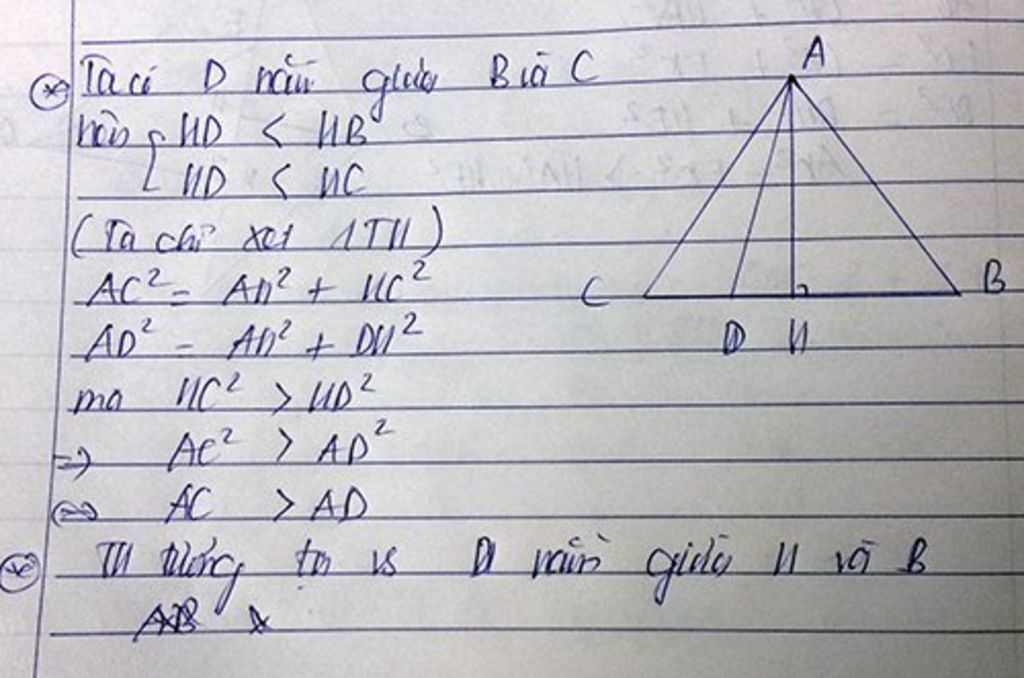 Ta có D nằm giữa B và C
nên { HD < HB
HD < HC
(Ta chỉ xét 1TH)
AC² = AH² + HC²
AD² = AH² + DH²
mà HC² > HD²
=> AC² > AD²
<=> AC > AD
TH tương tự vs D nằm giữa H và B
A
C
B
D H